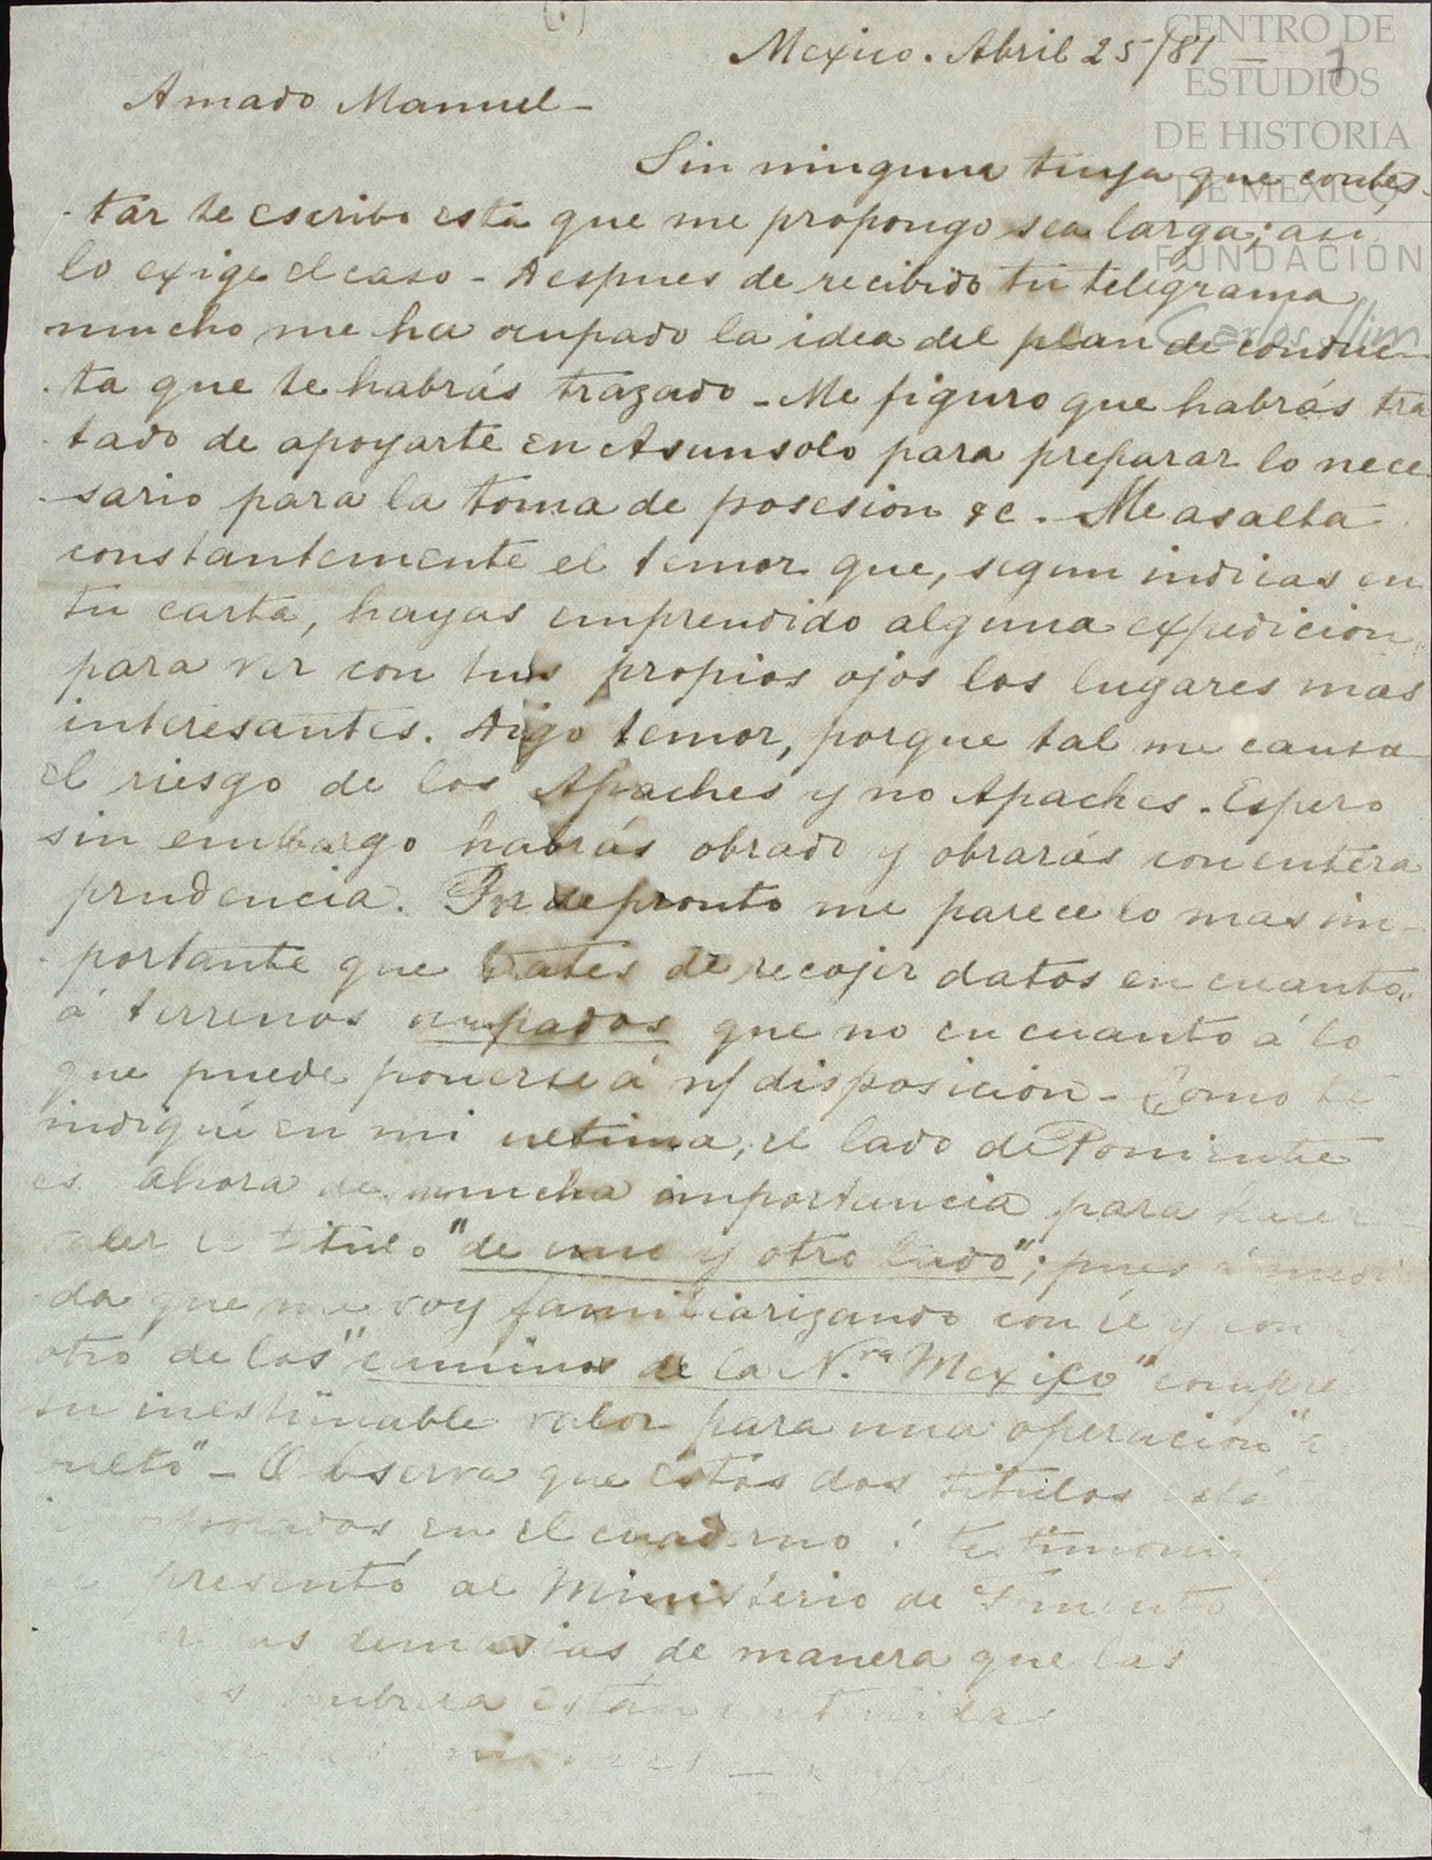 Mexico. Abril 25/81 —
Amado Manuel —
Sin ninguna tuya que contes-
tar te escribo esta que me propongo sea larga; asi
lo exige el caso - Despues de recibido tu telégrama
mucho me ha ocupado la idea del plan de conduc-
ta que te habrás trazado - Me figuro que habrás tra
tado de apoyarte en Asunsolo para preparar lo nece-
sario para la toma de posesion &c. - Me asalta
constantemente el temor que, segun indicas en
tu carta, hayas emprendido alguna expedicion
para ver con tus propios ojos los lugares mas
interesantes. Digo temor, porque tal me causa
el riesgo de los Apaches y no Apaches. Espero
sin embargo habrás obrado y obrarás con entera
prudencia. Por de pronto me parece lo mas im-
portante que trates de recojer datos en cuanto
á terrenos ocupados que no en cuanto á lo
que puede ponerse á n/ disposicion - Como te
indiqué en mi ultima, el lado de Poniente
es ahora de mucha importancia para hacer
valer el titulo "de uno y otro lado"; pues á medi
da que me voy familiarizando con él y con
otro de los "caminos de la N.ra Mexico"
su inestimable valor para una operacion
Observa que éstos dos titulos
en el cuaderno ó testimonio
presentó al Ministerio de Fomento
demasias de manera que las
están
CENTRO DE
ESTUDIOS
DE HISTORIA
DE MEXICO
FUNDACIÓN
Carlos Slim